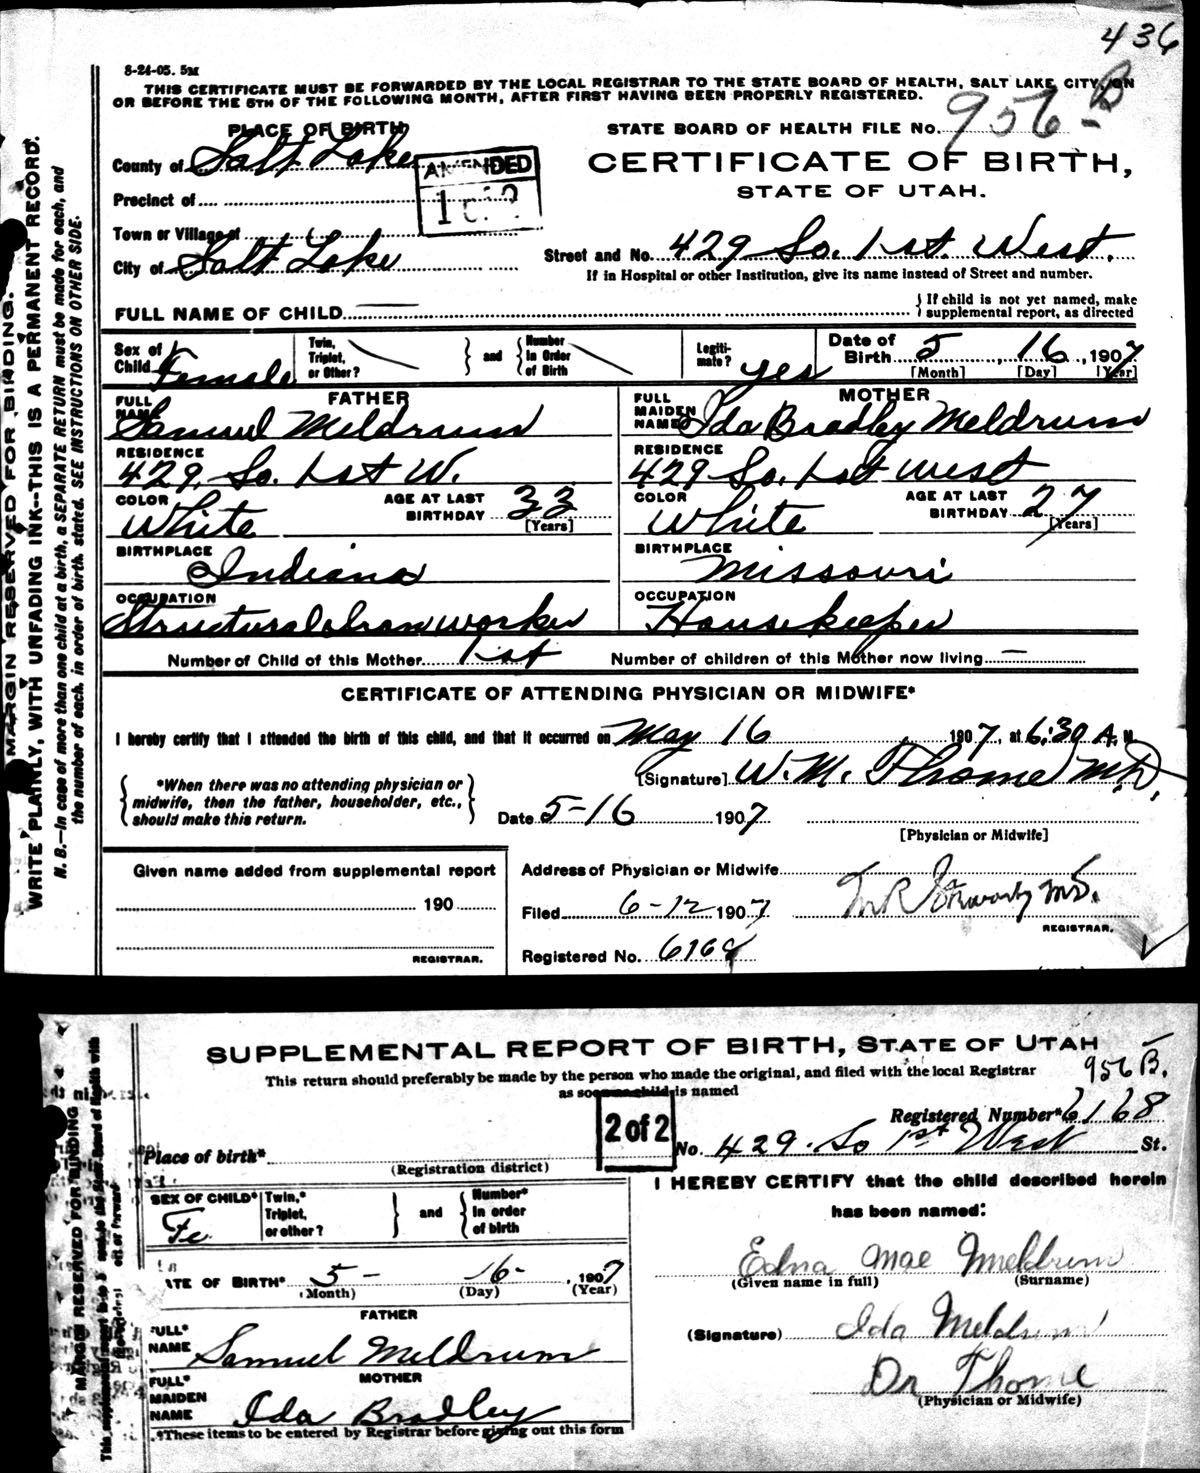 436
8-24-05. 5M
THIS CERTIFICATE MUST BE FORWARDED BY THE LOCAL REGISTRAR TO THE STATE BOARD OF HEALTH, SALT LAKE CITY, ON
OR BEFORE THE 5TH OF THE FOLLOWING MONTH, AFTER FIRST HAVING BEEN PROPERLY REGISTERED.
PLACE OF BIRTH
STATE BOARD OF HEALTH FILE No. 956-B
County of Salt Lake
AMENDED
CERTIFICATE OF BIRTH,
STATE OF UTAH.
Precinct of
Town or Village of
Street and No. 429 So. 1st. West.
City of Salt Lake
If in Hospital or other Institution, give its name instead of Street and number.
FULL NAME OF CHILD
If child is not yet named, make supplemental report, as directed
Sex of Child Female
Twin, Triplet, or Other?
and
Number In Order of Birth
Legiti- mate? yes
Date of Birth 5, 16, 1907
[Month] [Day] [Year]
FATHER
MOTHER
FULL NAME Samuel Meldrum
FULL MAIDEN NAME Ida Bradley Meldrum
RESIDENCE 429. So. 1st W.
RESIDENCE 429 So. 1st west
COLOR White
AGE AT LAST BIRTHDAY 33 [Years]
COLOR White
AGE AT LAST BIRTHDAY 27 [Years]
BIRTHPLACE Indiana
BIRTHPLACE Missouri
OCCUPATION Structural Iron worker
OCCUPATION Housekeeper
Number of Child of this Mother 1st
Number of children of this Mother now living —
CERTIFICATE OF ATTENDING PHYSICIAN OR MIDWIFE*
I hereby certify that I attended the birth of this child, and that it occurred on May 16 1907, at 6:30 A. M.
*When there was no attending physician or midwife, then the father, householder, etc., should make this return.
[Signature] W. M. Thome M.D.
Date 5-16 1907
[Physician or Midwife]
Given name added from supplemental report
190
REGISTRAR.
Address of Physician or Midwife
Filed 6-12 1907
M.D.
REGISTRAR.
Registered No. 6168
MARGIN RESERVED FOR BINDING.
WRITE PLAINLY, WITH UNFADING INK--THIS IS A PERMANENT RECORD.
N. B.—In case of more than one child at a birth, a SEPARATE RETURN must be made for each, and
the number of each, in order of birth, stated. SEE INSTRUCTIONS ON OTHER SIDE.
SUPPLEMENTAL REPORT OF BIRTH, STATE OF UTAH
956 B.
This return should preferably be made by the person who made the original, and filed with the local Registrar
as soon as child is named
2 of 2
Registered Number* 6168
Place of birth*
No. 429. So 1st West St.
(Registration district)
SEX OF CHILD* Fe
Twin,* Triplet, or other?
and
Number* In order of birth
I HEREBY CERTIFY that the child described herein
has been named:
Edna Mae Meldrum
(Given name in full) (Surname)
ATE OF BIRTH* 5- 16-, 1907
(Month) (Day) (Year)
FATHER
FULL* NAME Samuel Meldrum
(Signature) Ida Meldrum
MOTHER
FULL* MAIDEN NAME Ida Bradley
Dr Thome
(Physician or Midwife)
*These items to be entered by Registrar before giving out this form
MARGIN RESERVED FOR BINDING